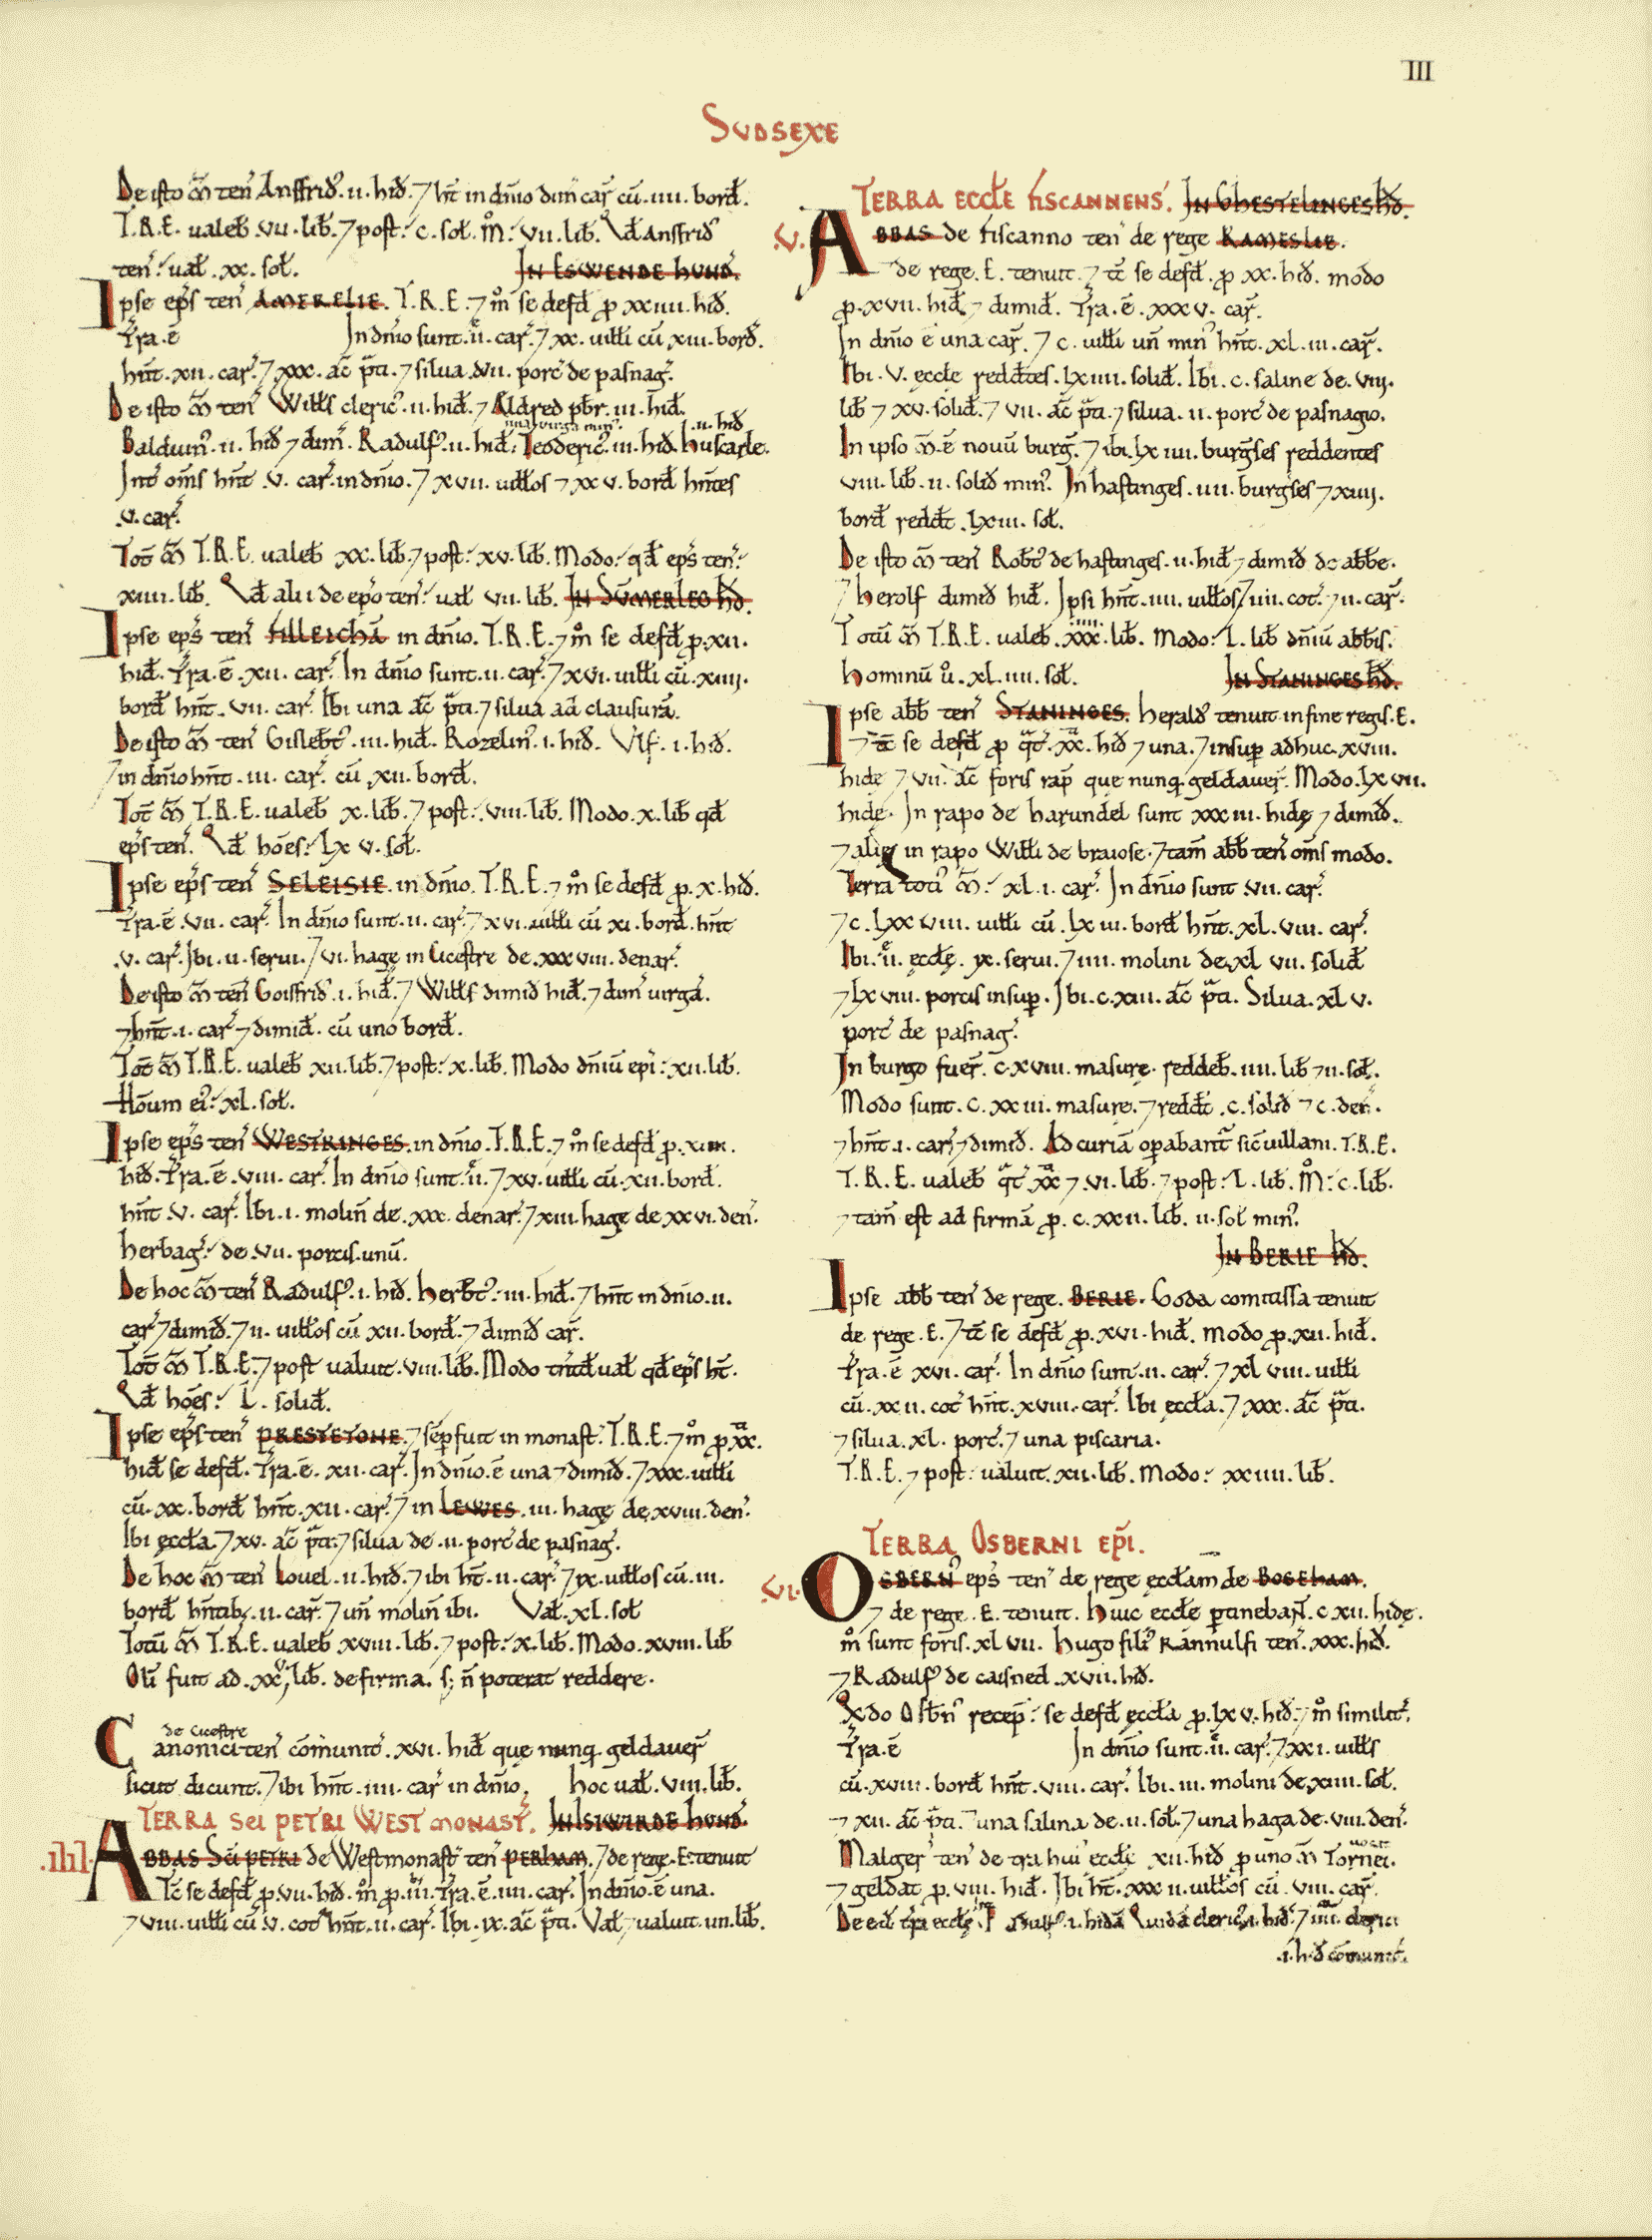 III
SUDSEXE
De isto m̃ ten̉ Ansfrid̉ .ii. hid̃. ⁊ ht̃ in dñio dim̃ car̉ cũ .iiii. bord̃.
T.R.E. ualeb̃ .vii. lib̃. ⁊ post: c. sol̃. M̊: vii. lib̃. Qđ Ansfrid̉
ten̉: ual̃ .xx. sol̃. IN ESWENDE HUND̉.
Ipse ep̃s ten̉ AMERELIE. T.R.E. ⁊ m̊ se defd̃ ꝑ xxiiii. hid̃.
Tr̃a .ẽ In dñio sunt .ii. car̉. ⁊ xx. uilli cũ xiii. bord̃.
hñt .xii. car̉. ⁊ xxx. ac̃ p̃ti. ⁊ silua .vii. porc̉ de pasnag̉.
De isto m̃ ten̉ Will̃s cleric̉ .ii. hid̃. ⁊ Aldred p̃br .iii. hid̃.
una uirga min̉. .ii. hid̃
Balduin̉ .ii. hid̃ ⁊ dim̃. Radulf̉ .ii. hid̃: Teoderic̉ .iii. hid̃. huscarle.
Int̉ om̃s hñt .v. car̉ .in dñio. ⁊ xvii. uill̃os ⁊ xxv. bord̃ hñtes
.v. car̉.
Tot̃ m̃ T.R.E. ualeb̃ xx. lib̃. ⁊ post: xv. lib̃. Modo: qđ ep̃s ten̉:
xiiii. lib̃. Qđ alii de ep̃o ten̉: ual̃ vii. lib̃. IN DUMERLEG HD̃.
Ipse ep̃s ten̉ FILLEICHÃ in dñio. T.R.E. ⁊ m̊ se defd̃ ꝑ .xii.
hid̃. Tr̃a .ẽ .xii. car̉. In dñio sunt .ii. car̉. ⁊ xvi. uilli cũ .xiiij.
bord̃ hñt .vii. car̉. Ibi una ac̃ p̃ti. ⁊ silua ad clausurã.
De isto m̃ ten̉ Gisleb̃t̉ .iii. hid̃. Rozelin̉ .i. hid̃. Vlf .i. hid̃.
⁊ in dñio hñt .iii. car̉. cũ .xii. bord̃.
Tot̃ m̃ T.R.E. ualeb̃ x. lib̃. ⁊ post: viii. lib̃. Modo .x. lib̃ qđ
ep̃s ten̉. Qđ hões: lxv. sol̃.
Ipse ep̃s ten̉ SELEISIE. in dñio. T.R.E. ⁊ m̊ se defd̃ ꝑ .x. hid̃.
Tr̃a .ẽ .vii. car̉. In dñio sunt .ii. car̉. ⁊ xvi. uilli cũ xi. bord̃. hñt
.v. car̉. Ibi .ii. serui. ⁊ vi. hagę in Cicestre de .xxxviii. denar̉.
De isto m̃ ten̉ Goisfrid̉ .i. hid̃. ⁊ Will̃s dimid̃ hid̃. ⁊ dim̃ uirgã.
⁊ hñt .i. car̉ ⁊ dimid̃. cũ uno bord̃.
Tot̃ m̃ T.R.E. ualeb̃ xii. lib̃. ⁊ post: x. lib̃. Modo dñiũ ep̃i: xii. lib̃.
Hõum eỉ: xl. sol̃.
Ipse ep̃s ten̉ WESTRINGES. in dñio. T.R.E. ⁊ m̊ se defd̃ ꝑ .xiiii.
hid̃. Tr̃a .ẽ .viii. car̉. In dñio sunt .ii. ⁊ xv. uilli cũ .xii. bord̃.
hñt .v. car̉. Ibi .i. molin̉ de .xxx. denar̉. ⁊ xiii. hagę de xxvi. den̉.
herbag̉: de .vii. porcis .unũ.
De hoc m̃ ten̉ Radulf̉ .i. hid̃. herb̃t̉: iii. hid̃. ⁊ hñt in dñio .ii.
car̉ ⁊ dimid̃. ⁊ ii. uill̃os cũ xii. bord̃. ⁊ dimid̃ car̉.
Tot̃ m̃ T.R.E. ⁊ post ualuit .viii. lib̃. Modo tñtđ ual̃ qđ ep̃s ht̃.
Qđ hões: L. solid̃.
Ipse ep̃s ten̉ PRESTETONE. ⁊ sẽp fuit in monast̉. T.R.E. ⁊ m̊ ꝑ xx.
hid̃ se defd̃. Tr̃a .ẽ. xii. car̉. In dñio .ẽ una ⁊ dimid̃. ⁊ xxx. uilli
cũ .xx. bord̃ hñt .xii. car̉. ⁊ in LEWES .iii. hagę de .xviii. den̉.
Ibi ęccl̃a. ⁊ xv. ac̃ p̃ti. ⁊ silua de .ii. porc̉ de pasnag̉.
De hoc m̃ ten̉ Louel .ii. hid̃. ⁊ ibi ht̃ .ii. car̉. ⁊ ix. uill̃os cũ .iii.
bord̃ hñtib; .ii. car̉. ⁊ uñ molin̉ ibi. Val̃ .xl. sol̃
Totũ m̃ T.R.E. ualeb̃ xviii. lib̃. ⁊ post: x. lib̃. Modo .xviii. lib̃
Olĩ fuit ad .xxv. lib̃. de firma. s; ñ poterat reddere.
de Cicestre
Canonici ten̉ cõmunit̉ .xvi. hid̃ quę nunq̃ geldauer̉
sicut dicunt. ⁊ ibi hñt .iiii. car̉ in dñio. hoc ual̃ .viii. lib̃.
TERRA SCĨ PETRI WESTMONAST̉. IN ISIWIRDE HUND̉.
.IIII. ABBAS SC̃I PETRI de Westmonast̉ ten̉ PERHAM. ⁊ de rege .E. tenuit
Tc̃ se defd̃ ꝑ .vii. hid̃. m̊ ꝑ .iii. Tr̃a .ẽ. iiii. car̉. In dñio .ẽ una.
⁊ viii. uilli cũ v. cot̉ hñt .ii. car̉. Ibi .ix. ac̃ p̃ti. Val̃ ⁊ ualuit .iiii. lib̃.
TERRA ECCL̃E FISCANNENS̉. IN GHESTELINGES HD̃.
.V. ABBAS de Fiscanno ten̉ de rege RAMESLIE.
de rege .E. tenuit. ⁊ tc̃ se defd̃ .ꝑ xx. hid̃. modo
ꝑ .xvii. hid̃ ⁊ dimid̃. Tr̃a .ẽ. xxxv. car̉.
In dñio ẽ una car̉. ⁊ c. uilli uñ min̉ hñt .xl.iii. car̉.
Ibi .v. ęccl̃e redd̃tes .lxiiii. solid̃. Ibi .c. saline de .viij.
lib̃ ⁊ xv. solid̃. ⁊ vii. ac̃ p̃ti. ⁊ silua .ii. porc̉ de pasnagio.
In ipso m̃ .ẽ nouũ burg̃. ⁊ ibi .lxiiii. burg̃ses reddentes
viii. lib̃ .ii. solid̃ min̉. In hastinges .iiii. burg̃ses ⁊ xiiij.
bord̃ redd̃t .lxiii. sol̃.
De isto m̃ ten̉ Rob̃t̉ de hastinges .ii. hid̃ ⁊ dimid̃ de abb̃e.
⁊ herolf dimid̃ hid̃. Ipsi hñt .iiii. uill̃os ⁊ iiii. cot̉. ⁊ ii. car̉.
Totũ m̃ T.R.E. ualeb̃ .xxx.iiii. lib̃. Modo: L. lib̃ dñiũ abb̃is.
hominũ ů .xl.iiii. sol̃. IN STANINGES HD̃.
Ipse abb̃ ten̉ STANINGES. herald̉ tenuit in fine regis .E.
⁊ tc̃ se defd̃ ꝑ q̃t̉ .xx. hid̃ ⁊ una. ⁊ insup̃ adhuc .xviii.
hidę ⁊ vii. ac̃ foris rap̃ que nunq̃ geldauer̉. Modo .lxvii.
hidę. In rapo de harundel sunt xxxiii. hidę ⁊ dimid̃.
⁊ alię in rapo Willi de braiose. ⁊ tam̃ abb̃ ten̉ om̃s modo.
Terra totỉ m̃: xl.i. car̉. In dñio sunt vii. car̉.
⁊ c. lxxviii. uilli cũ .lxiii. bord̃ hñt .xl.viii. car̉.
Ibi .ii. ęccl̃ę .ix. serui. ⁊ iiii. molini de .xlvii. solid̃
⁊ lxviii. porcis insup̃. Ibi .c.xiii. ac̃ p̃ti. Silua .xlv.
porc̉ de pasnag̉.
In burgo fuer̉ .c.xviii. masurę. reddeb̃ .iiii. lib̃ ⁊ ii. sol̃.
Modo sunt .c.xxiii. masurę. ⁊ redd̃t .c. solid̃ ⁊ c. den̉.
⁊ hñt .i. car̉ ⁊ dimid̃. Ad curiã oꝑabant̉ sic̃ uillani .T.R.E.
T.R.E. ualeb̃ q̃t̉ xx ⁊ vi. lib̃. ⁊ post: L. lib̃. M̊: c. lib̃.
⁊ tam̃ est ad firmã ꝑ .c.xxii. lib̃ .ii. sol̃ min̉.
IN BERIE HD̃.
Ipse abb̃ ten̉ de rege. BERIE. Goda comitissa tenuit
de rege .E. ⁊ tc̃ se defd̃ ꝑ .xvi. hid̃. modo ꝑ .xii. hid̃.
Tr̃a .ẽ xvi. car̉. In dñio sunt .ii. car̉. ⁊ xlviii. uilli
cũ .xxii. cot̉ hñt .xviii. car̉. Ibi ęccl̃a. ⁊ xxx. ac̃ p̃ti.
⁊ silua .xl. porc̉. ⁊ una piscaria.
T.R.E. ⁊ post: ualuit .xii. lib̃. Modo: xxiiii. lib̃.
TERRA OSBERNI EP̃I.
.VI. OSBERN̉ ep̃s ten̉ de rege ęccl̃am de BOSEHAM.
⁊ de rege .E. tenuit. huic ęccl̃e ꝑtinebañt .c.xii. hidę.
m̊ sunt foris .xlvii. hugo filỉ Rannulfi ten̉ .xxx. hid̃.
⁊ Radulf̉ de caisned .xvii. hid̃.
Qdo Osb̃n̉ recep̃: se defd̃ ęccl̃a ꝑ .lxv. hid̃: ⁊ m̊ similit̉.
Tr̃a .ẽ In dñio sunt .ii. car̉. ⁊ xxi. uill̃s
cũ .xviii. bord̃ hñt .viii. car̉. Ibi .iii. molini de .xiiii. sol̃.
⁊ xii. ac̃ p̃ti. ⁊ una salina de .ii. sol̃. ⁊ una haga de .viii. den̉.
Malger̉ ten̉ de tr̃a huỉ ęccl̃ę xii. hid̃ ꝑ uno m̃ Tornei.
⁊ geldat ꝑ .viii. hid̃. Ibi ht̃ .xxxii. uill̃os cũ .viii. car̉.
De ead̃ tr̃a ęccl̃ę .i. hidã Quidã cleric̉ .i. hid̃. ⁊ clerici
.i. hid̃ cõmunit̉.